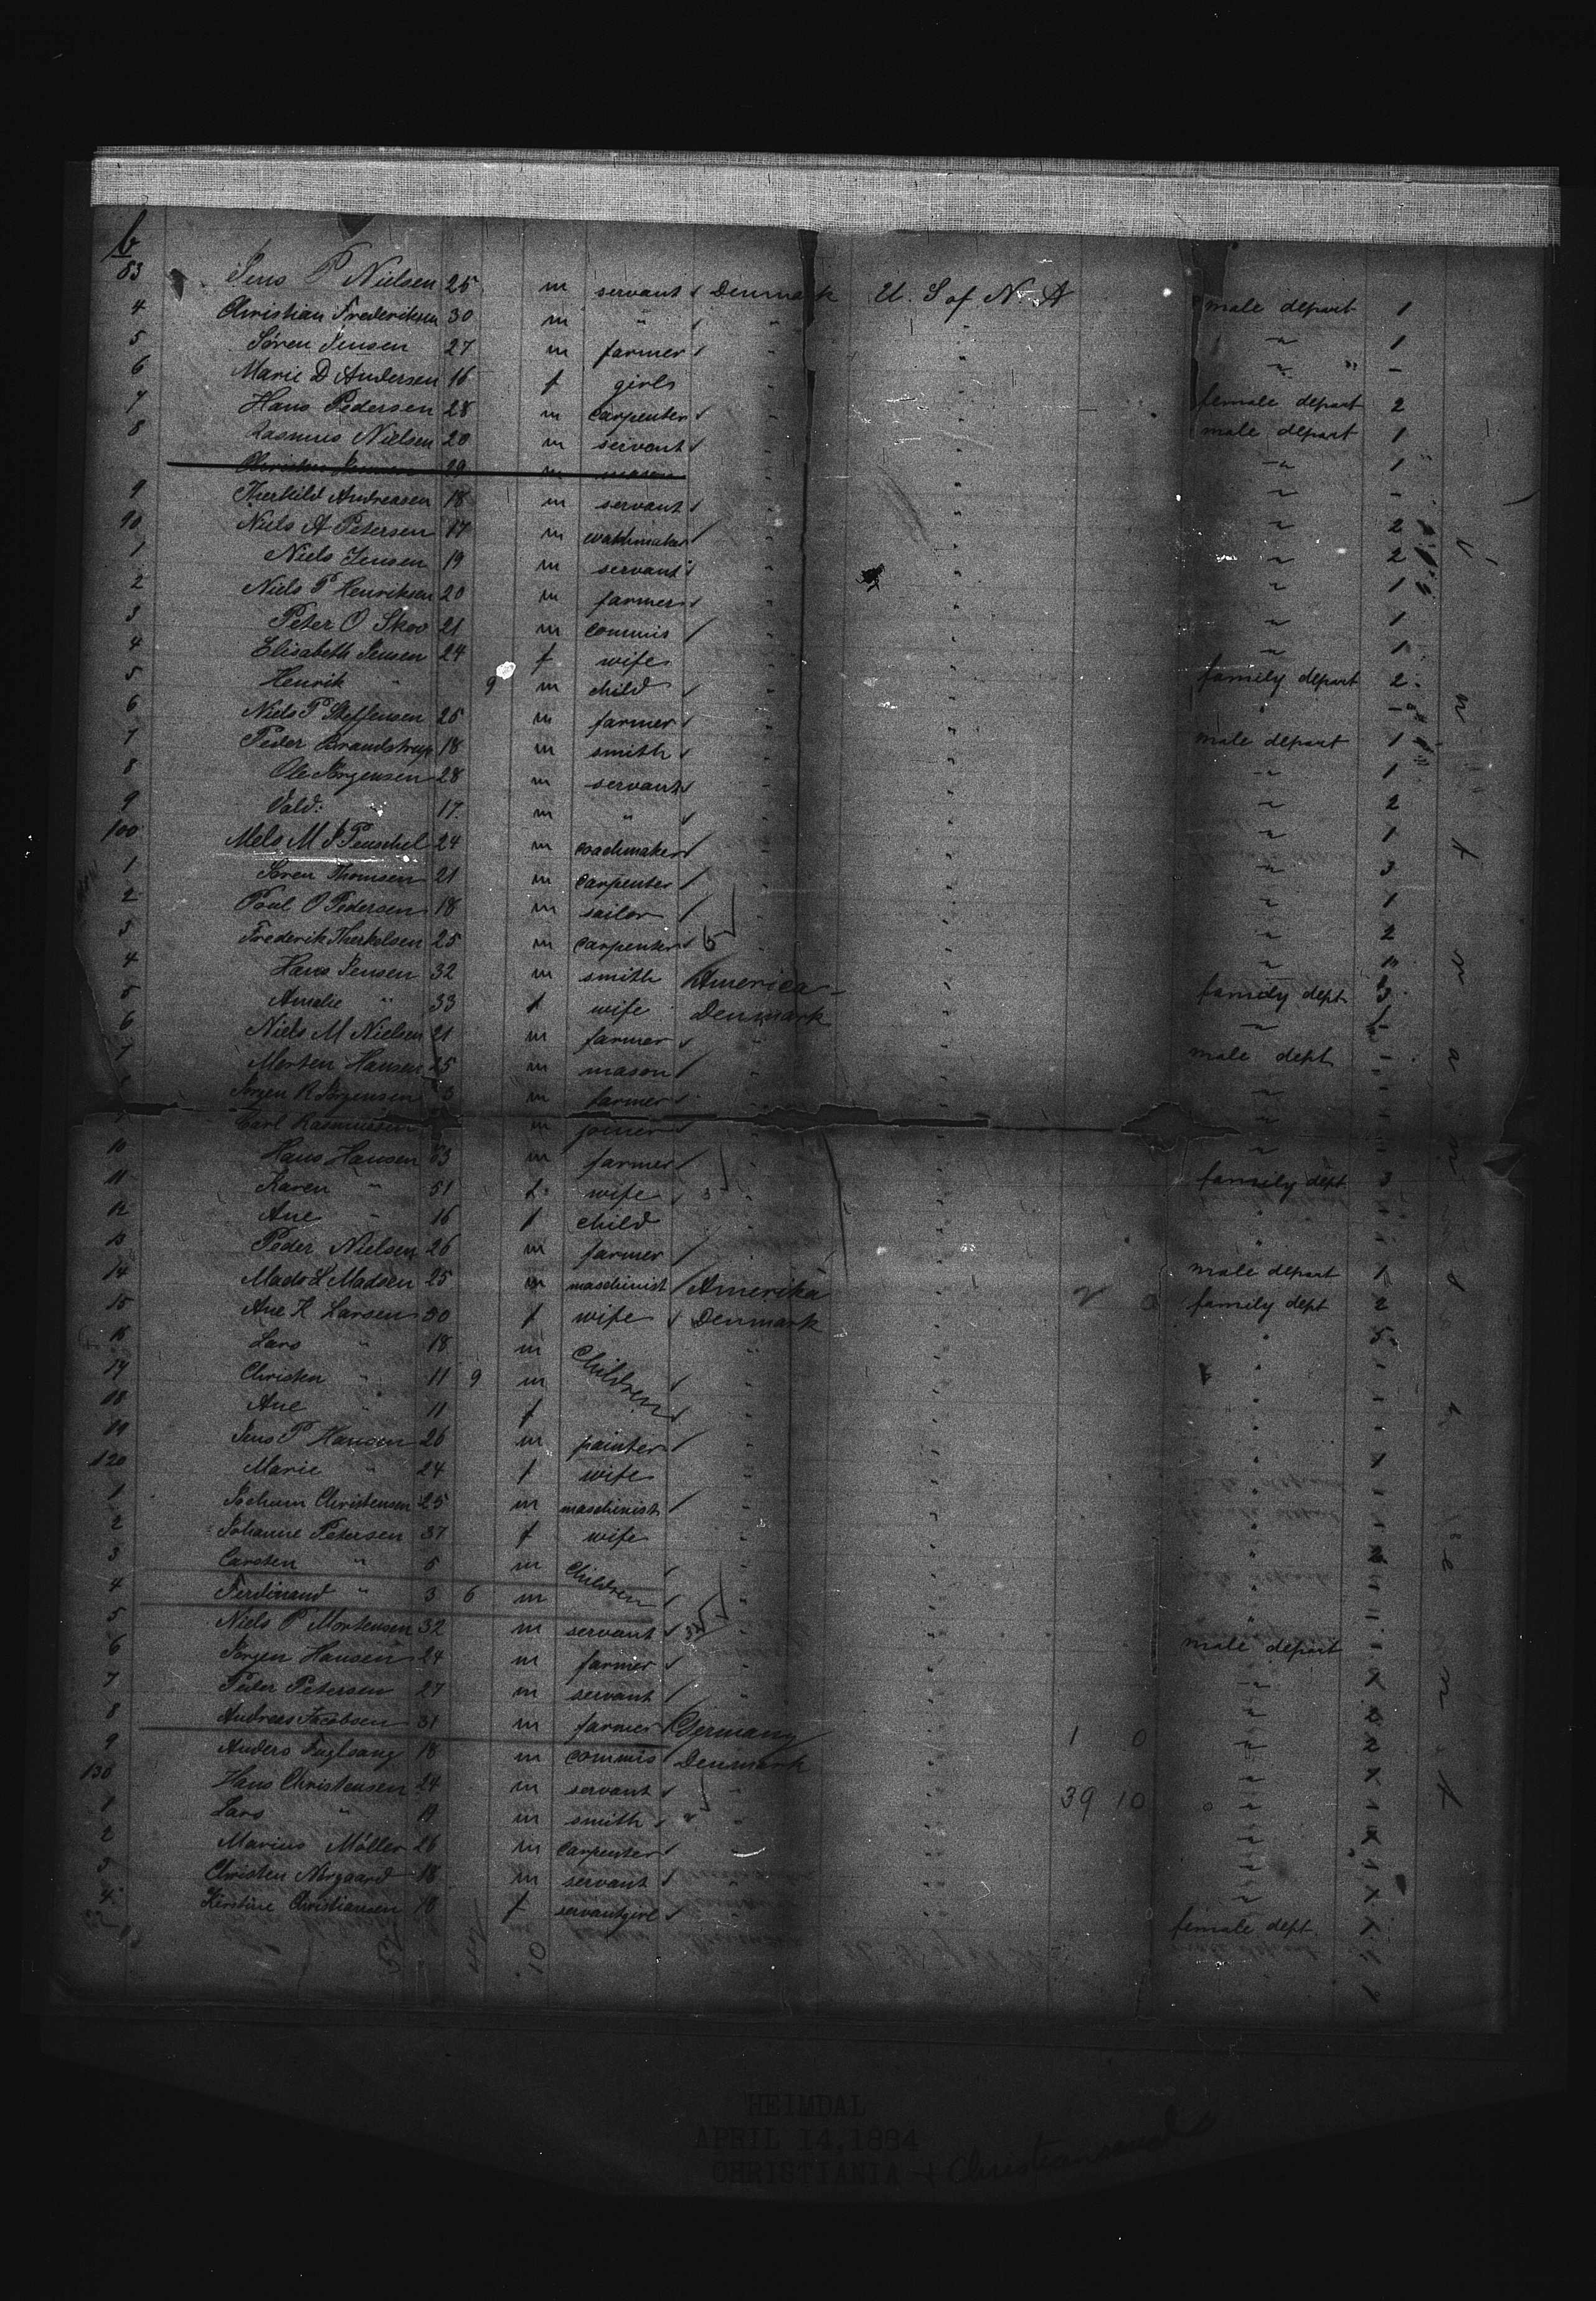 b
83 Jens P Nielsen 25 m servant Denmark U. S of N. A male depart 1
4 Christian Frederiksen 30 m " " " " 1
5 Søren Jensen 27 m farmer " " " -
6 Marie D Andersen 16 f girls " " female depart 2
7 Hans Pedersen 28 m carpenter " " male depart 1
8 Rasmus Nielsen 20 m servant " " " 1
29 m mason " -
9 Therkild Andreasen 18 m servant " " " 2
90 Niels A Petersen 17 m watchmaker " " " 2
1 Niels Jensen 19 m servant " " " 1
2 Niels P Henriksen 20 m farmer " " " 1
3 Peter O Skov 21 m commis " " " 1
4 Elisabeth Jensen 24 f wife " " family depart 2
5 Henrik " 9 m child " " " -
6 Niels P Steffensen 25 m farmer " " male depart 1
7 Peder Brandstrup 18 m smith " " " 1
8 Ole Jørgensen 28 m servant " " " 2
9 Vald: " 17 m " " " " 1
100 Mels M P Peuschel 24 m coachmaker " " " 3
1 Søren Thomsen 21 m carpenter " " " 1
2 Poul O Pedersen 18 m sailor " " " 2
3 Frederik Therkelsen 25 m carpenter " " "
4 Hans Jensen 32 m smith America " family dept 3
5 Amalie " 33 f wife Denmark " " -
6 Niels M Nielsen 21 m farmer " " male dept -
7 Morten Hansen 25 m mason " " " -
Jørgen R Jørgensen m farmer " " " -
Carl Rasmussen m joiner " " " -
10 Hans Hansen 53 m farmer " " family dept 3
11 Karen " 51 f wife " " " -
12 Ane " 16 f child " " " -
13 Peder Nielsen 26 m farmer " " male depart 1
14 Mads L Madsen 25 m maschinist Amerika " 2 0 family dept 2
15 Ane K Larsen 50 f wife Denmark " " 5
16 Lars " 18 m Children " " " -
17 Christen " 11 9 m " " " -
18 Ane " 11 f " " " -
19 Jens P Hansen 26 m painter " " " 1
120 Marie " 24 f wife " " " -
1 Jochum Christensen 25 m maschinist " " " -
2 Johanne Petersen 37 f wife " " "
3 Carsten " 5 m Children " " " -
4 Ferdinand " 3 6 m " " " -
5 Niels P Mortensen 32 m servant " " male depart -
6 Jørgen Hansen 24 m farmer " " " 1
7 Peder Petersen 27 m servant " " " 2
8 Andreas Jacobsen 31 m farmer Germany " 1 0 " 2
9 Anders Fuglsang 18 m commis Denmark " " 1
130 Hans Christensen 24 m servant " " 39 10 " -
1 Lars " 19 m smith " " " 1
2 Marius Møller 26 m carpenter " " " -
3 Christen Nørgaard 18 m servant " " " 1
4 Kirstine Christiansen 18 f servantgirl " " female dept 1
10
HEIMDAL
APRIL 14, 1884
CHRISTIANIA + Christiansands